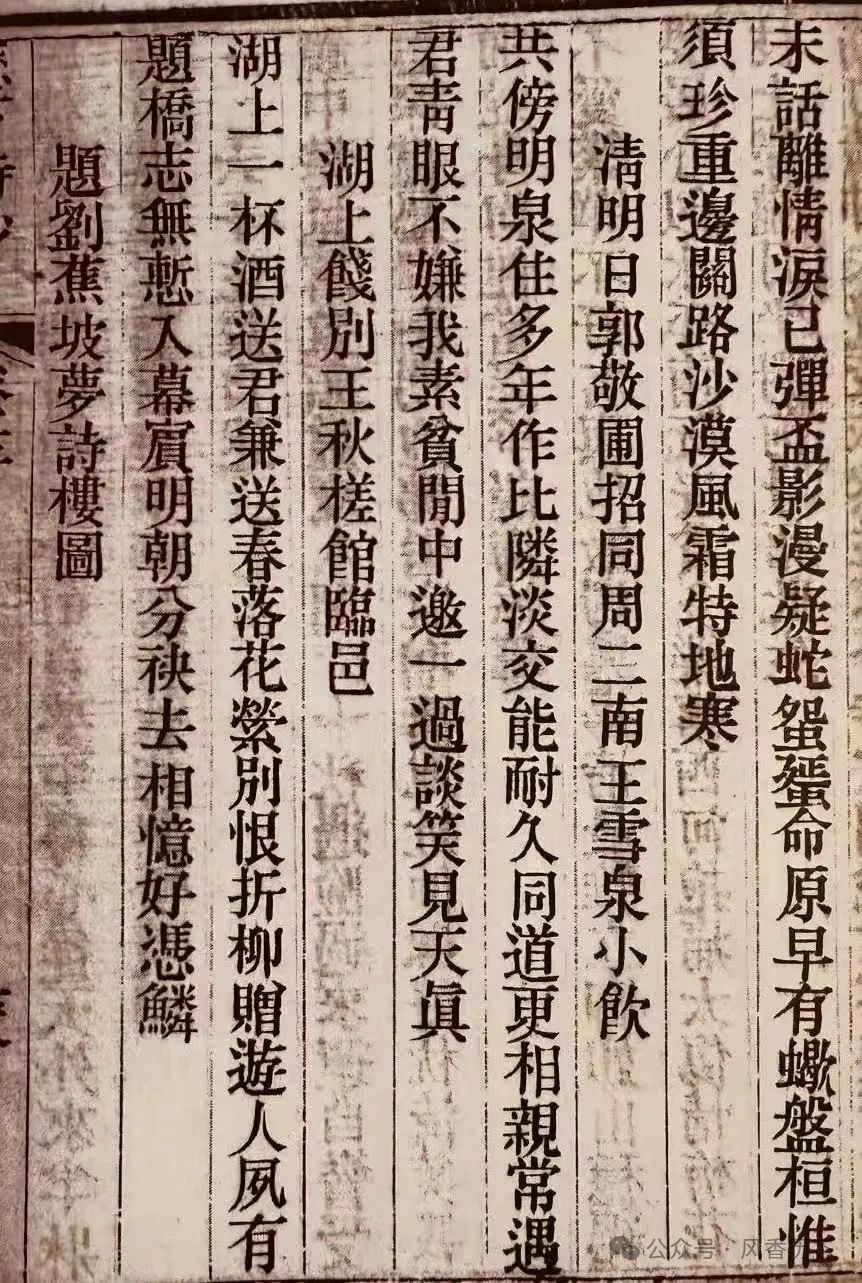 未話離情淚已彈盃影漫疑蛇蛩蛩命原早有蠍盤桓惟
須珍重邊關路沙漠風霜特地寒
淸明日郭敬圃招同周二南王雪泉小飮
共傍明泉住多年作比隣淡交能耐久同道更相親常遇
君靑眼不嫌我素貧閒中邀一過談笑見天眞
湖上餞別王秋槎館臨邑
湖上一杯酒送君兼送春落花縈別恨折柳贈遊人夙有
題橋志無慙入幕賔明朝分袂去相憶好憑鱗
題劉蕉坡夢詩樓圖
公众号·风香